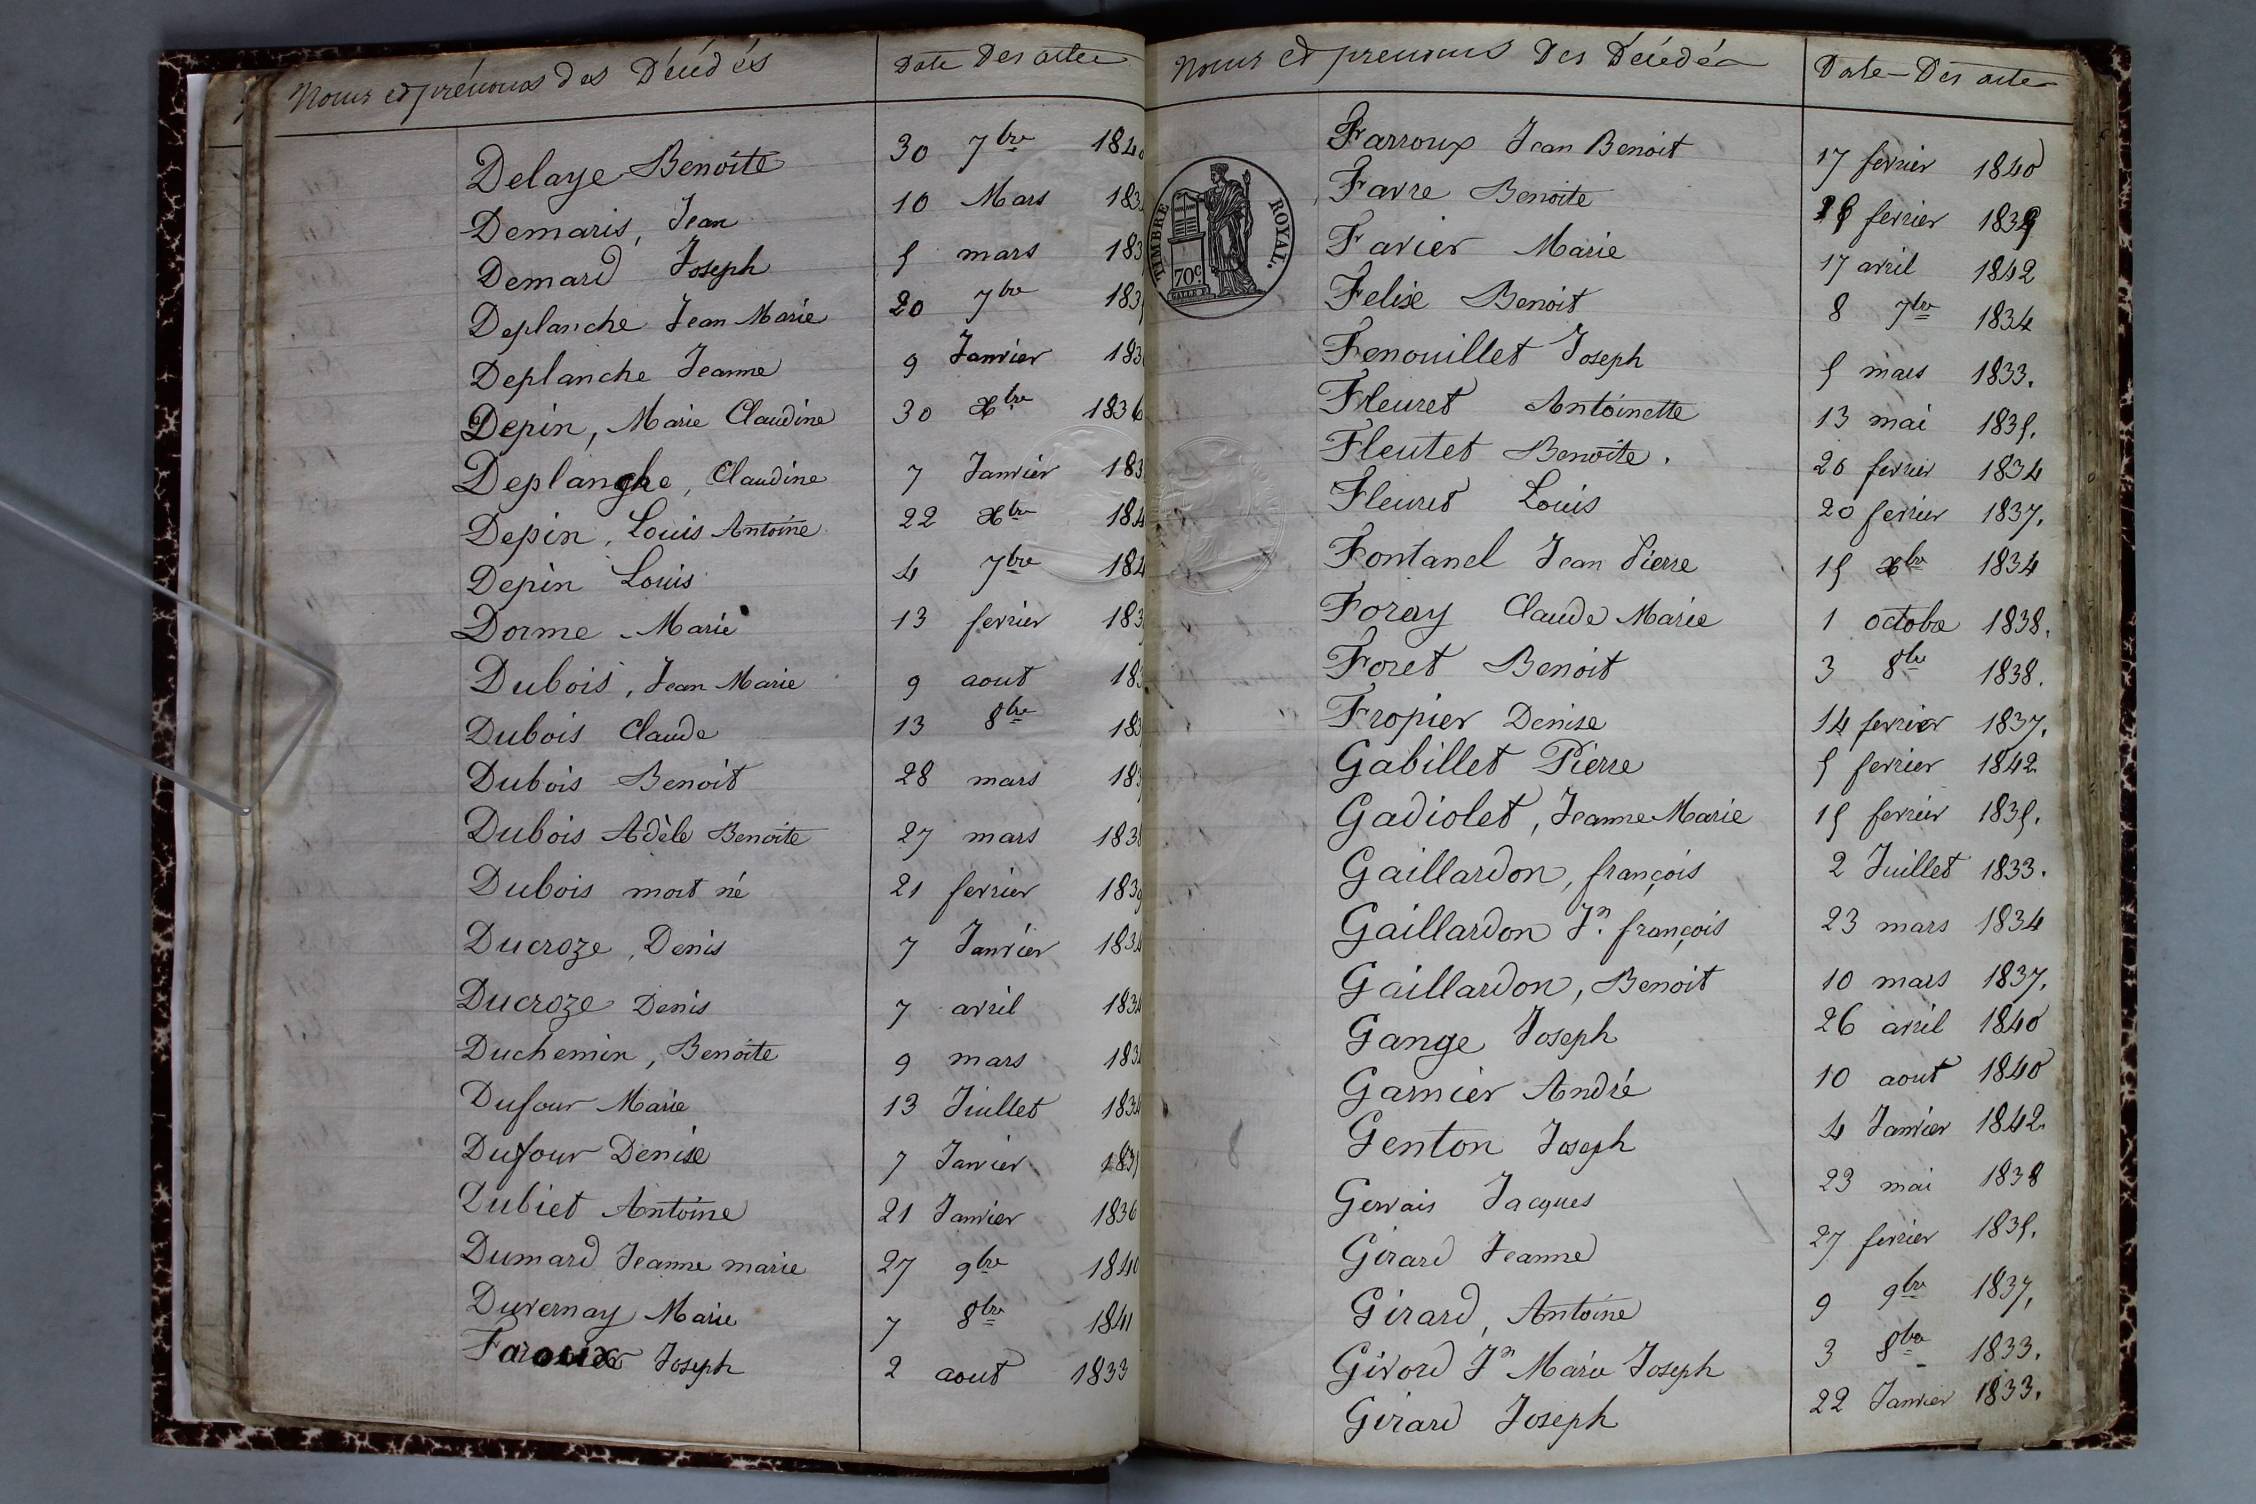 Noms et prénoms des Décédés
Date Des actes
Delaye Benoîte 30 7bre 184
Demaris, Jean 10 Mars 183
Demard Joseph 5 mars 183
Deplanche Jean Marie 20 7bre 183
Deplanche Jeanne 9 Janvier 183
Depin, Marie Claudine 30 Xbre 1836
Deplanche, Claudine 7 Janvier 183
Depin, Louis Antoine 22 Xbre 184
Depin Louis 4 7bre 184
Dorme Marie 13 fevrier 183
Dubois, Jean Marie 9 aout 183
Dubois Claude 13 8bre 183
Dubois Benoit 28 mars 183
Dubois Adèle Benoite 27 mars 183
Dubois mort né 21 fevrier 183
Ducroze, Denis 7 Janvier 183
Ducroze Denis 7 avril 183
Duchemin, Benoite 9 mars 183
Dufour Marie 13 Juillet 183
Dufour Denise 7 Janvier 183
Dubiet Antoine 21 Janvier 1836
Dumard Jeanne marie 27 9bre 1840
Duvernay Marie 7 8bre 1841
Faroux Joseph 2 aout 1833
Noms et prenoms Des Décédés
Date Des actes
TIMBRE ROYAL.
70c
Farroux Jean Benoit 17 fevrier 1840
Favre Benoite fevrier 1839
Favier Marie 17 avril 1842
Felise Benoit 8 7bre 1834
Fenouillet Joseph 5 mars 1833.
Fleuret Antoinette 13 mai 1835.
Fleutet Benoîte. 26 fevrier 1834
Fleuret Louis 20 fevrier 1837.
Fontanel Jean Pierre 15 Xbre 1834
Foray Claude Marie 1 octobre 1838.
Foret Benoit 3 8bre 1838.
Fropier Denise 14 fevrier 1837.
Gabillet Pierre 5 fevrier 1842
Gadiolet, Jeanne Marie 15 fevrier 1835.
Gaillardon, françois 2 Juillet 1833.
Gaillardon Jn. françois 23 mars 1834
Gaillardon, Benoit 10 mars 1837.
Gange Joseph 26 avril 1840
Garnier André 10 aout 1840
8 Genton Joseph 4 Janvier 1842.
Gervais Jacques 23 mai 1838
Girard Jeanne 27 fevrier 1835.
Girard, Antoine 9 9bre 1837,
Givord Jn Marie Joseph 3 8bre 1833.
Girard Joseph 22 Janvier 1833.